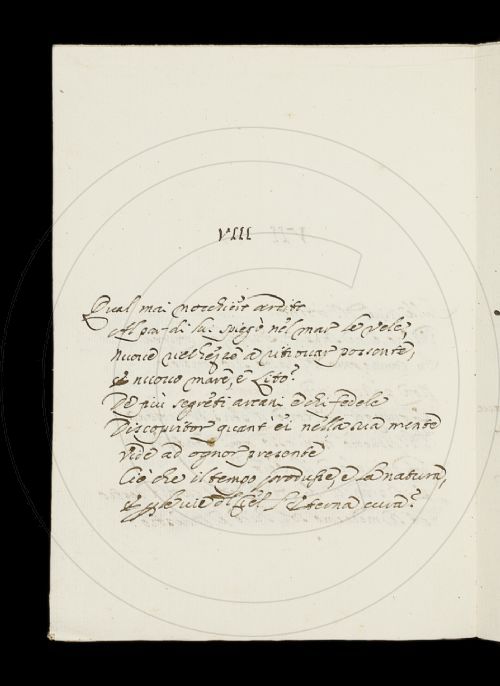 VIII
Qual mai nocchier ardito
Al par di lui spiegò nel mar le vele,
nuove a ritrovar
e nuovo mare, e lito?
De più segreti arcani e chi fedele
Discopritor quant' ei nella sua mente
Vide ad ognor presente
Ciò che il tempo produsse, e la natura,
E le vie del Ciel l'eterna cura?